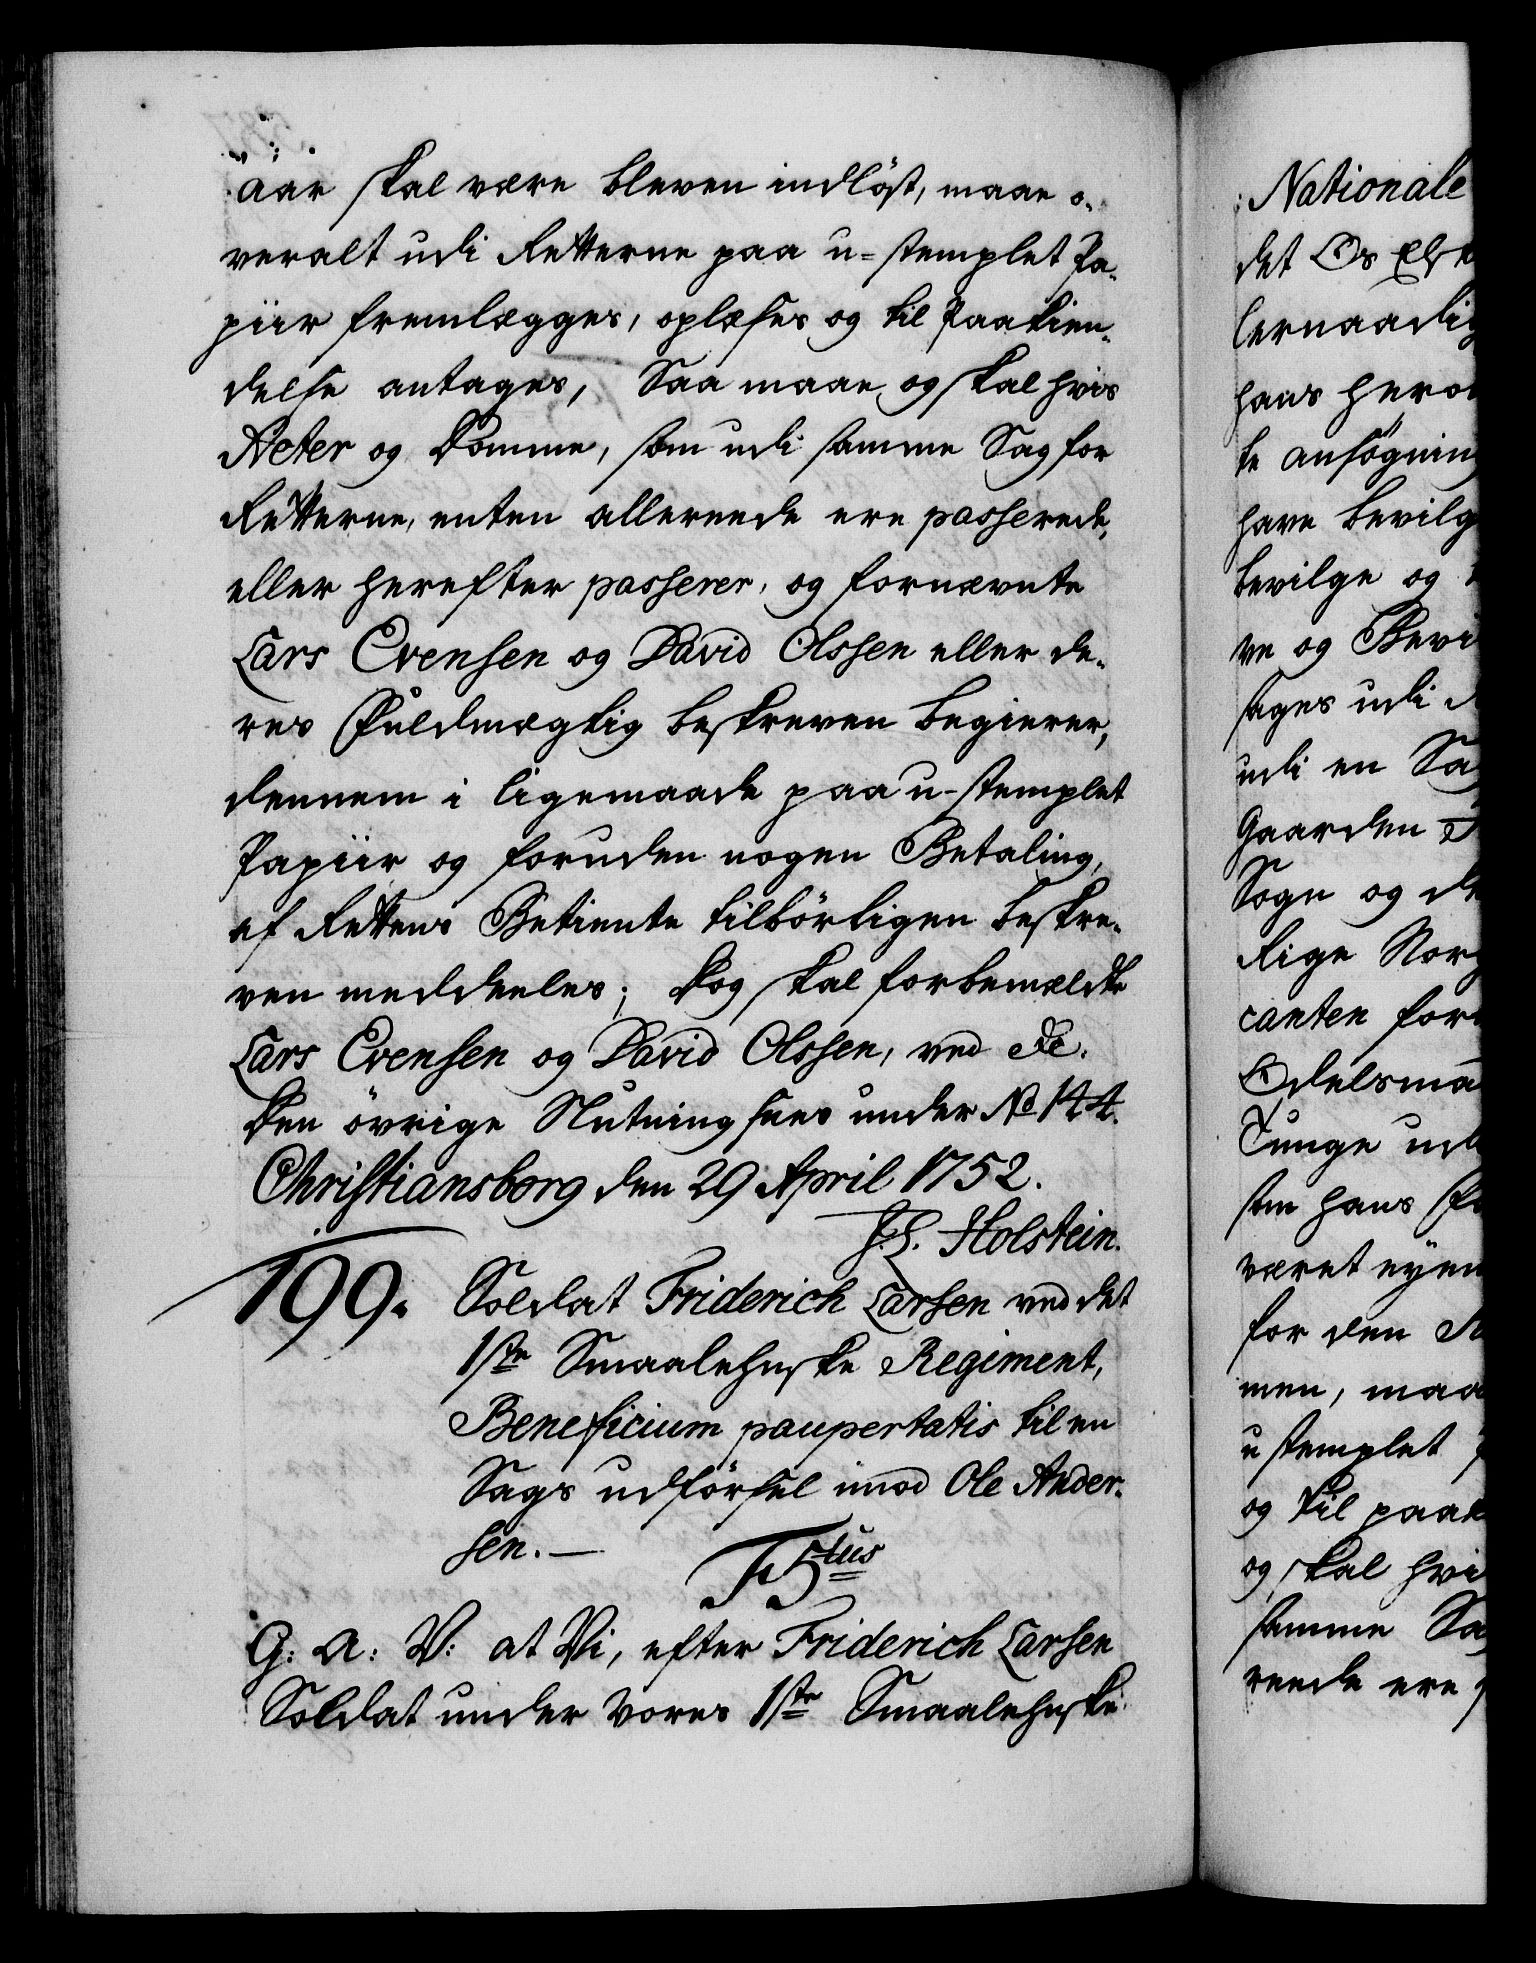 aar skal være bleven indløst, maae o-
veralt udi Retterne paa u-stemplet Pa-
piir fremlægges, oplæses og til Paakien-
delse antages, Saa maae og skal hvis
Acter og Domme, som udi samme Sag for
Retterne, enten allereede ere passerede,
eller herefter passerer, og fornævnte
Lars Evensen og David Olssen eller de-
res Fuldmægtig beskreven begierer,
dennem i ligemaade paa u-stemplet
Papiir og foruden nogen Betaling,
af Rettens Betiente tilbörligen beskre-
ven meddeeles; Dog skal forbemældte
Lars Evensen og David Olssen, ved &c.
Den övrige Slutning sees under No 144.
Christiansborg den 29 April 1752.
J. L. Holstein.
199. Soldat Friderich Larsen ved det
1ste Smaalehnske Regiment,
Beneficium paupertatis til en
Sags udförsel imod Ole Ander-
sen. —
F5tus
G: A: V: at Vi, efter Friderich Larsen
Soldat under Vores 1ste Smaalehnske
Nationale
det Os
lernaadig
hans her
te ansøgning
have bevilg
bevilge og
ve og Bevi
sages udi
udi en Sag
Gaarden
Sogn og de
rige Norg
canten for
Odelsma
Tunge ud
som hans
været eyen
for den
men, maa
u stemplet
og til paak
og skal hvi
samme Sa
reede ere